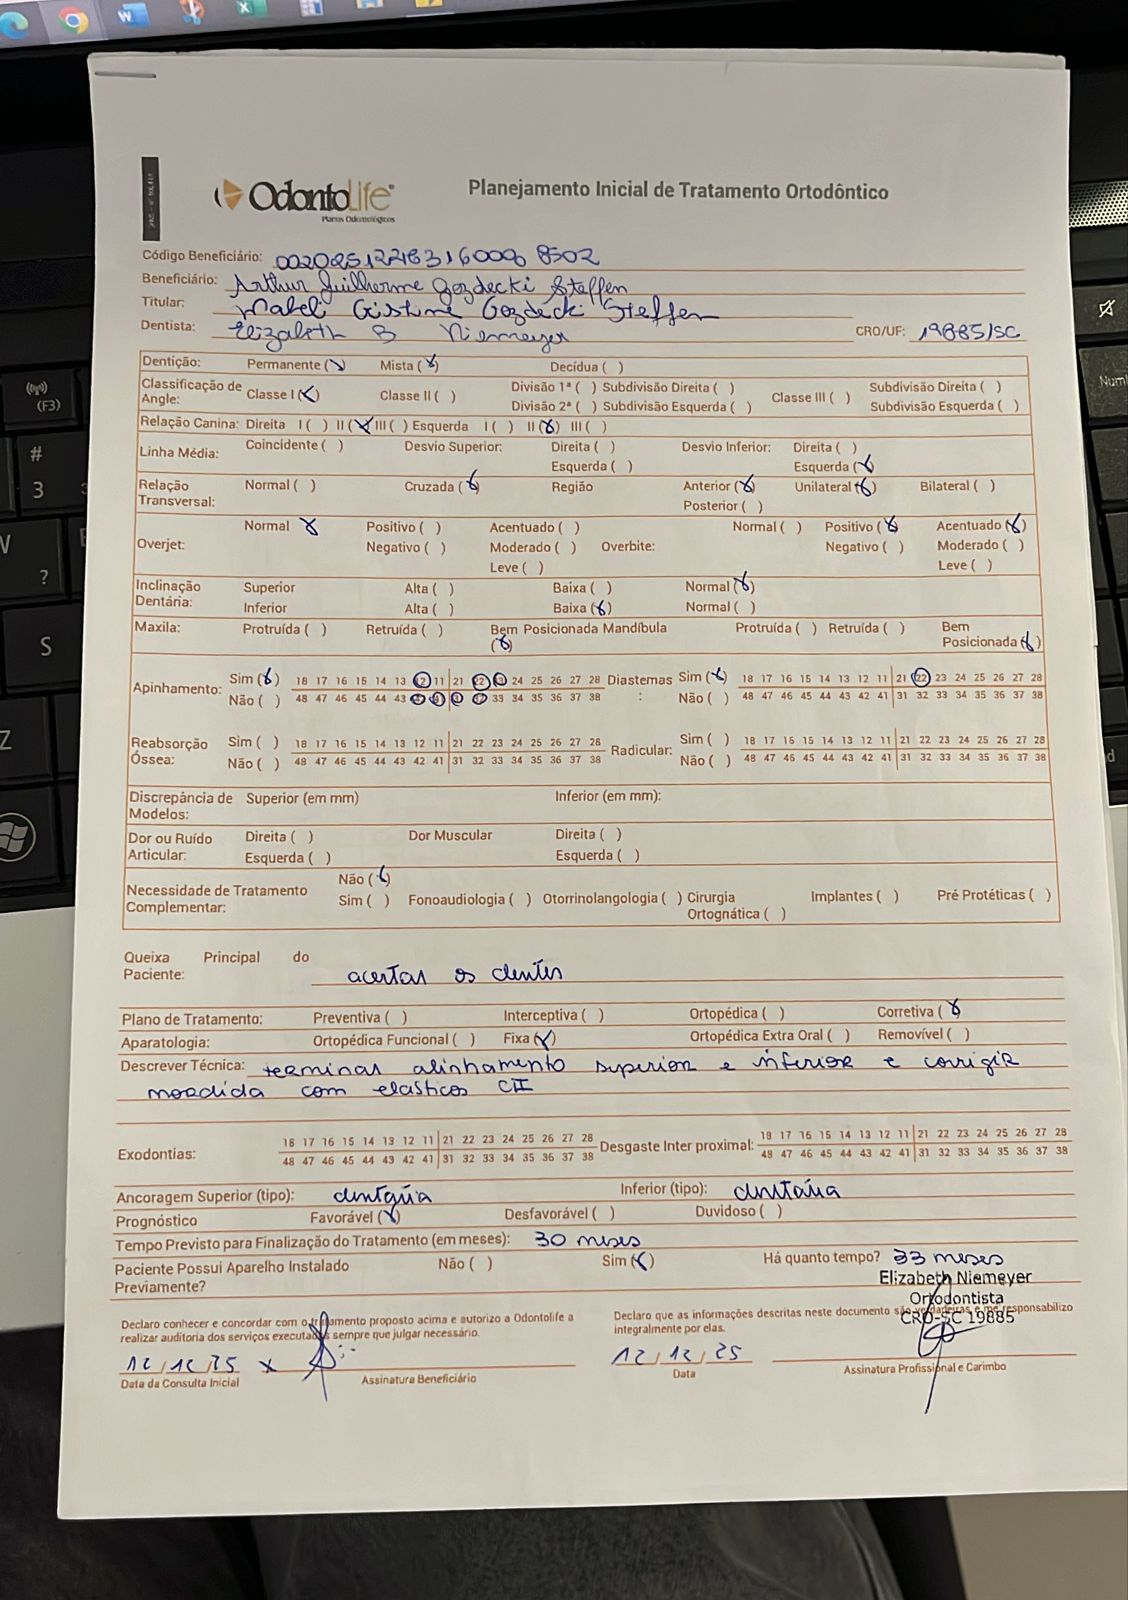 OdontoLife®
Planos Odontológicos
Planejamento Inicial de Tratamento Ortodôntico
Código Beneficiário: 00202512218316000 8502
Beneficiário: Arthur Guilherme Gozdecki Steffen
Titular: Mabeli Cristine Gozdecki Steffen
Dentista: Elizabeth B Niemeyer CRO/UF: 19885/SC
Dentição: Permanente (x) Mista (x) Decídua ( )
Classificação de Angle: Classe I (x) Classe II ( ) Divisão 1ª ( ) Subdivisão Direita ( ) Classe III ( ) Subdivisão Direita ( )
Divisão 2ª ( ) Subdivisão Esquerda ( ) Subdivisão Esquerda ( )
Relação Canina: Direita I ( ) II (x) III ( ) Esquerda I ( ) II (x) III ( )
Linha Média: Coincidente ( ) Desvio Superior: Direita ( ) Desvio Inferior: Direita ( )
Esquerda ( ) Esquerda (x)
Relação Transversal: Normal ( ) Cruzada (x) Região Anterior (x) Unilateral (x) Bilateral ( )
Posterior ( )
Overjet: Normal x Positivo ( ) Acentuado ( ) Normal ( ) Positivo (x) Acentuado (x)
Negativo ( ) Moderado ( ) Overbite: Negativo ( ) Moderado ( )
Leve ( ) Leve ( )
Inclinação Dentária: Superior Alta ( ) Baixa ( ) Normal (x)
Inferior Alta ( ) Baixa (x) Normal ( )
Maxila: Protruída ( ) Retruída ( ) Bem Posicionada (x) Mandíbula Protruída ( ) Retruída ( ) Bem Posicionada (x)
Apinhamento: Sim (x) 18 17 16 15 14 13 12 11 21 22 23 24 25 26 27 28 Diastemas: Sim (x) 18 17 16 15 14 13 12 11 21 22 23 24 25 26 27 28
Não ( ) 48 47 46 45 44 43 42 41 31 32 33 34 35 36 37 38 Não ( ) 48 47 46 45 44 43 42 41 31 32 33 34 35 36 37 38
Reabsorção Óssea: Sim ( ) 18 17 16 15 14 13 12 11 21 22 23 24 25 26 27 28 Radicular: Sim ( ) 18 17 16 15 14 13 12 11 21 22 23 24 25 26 27 28
Não ( ) 48 47 46 45 44 43 42 41 31 32 33 34 35 36 37 38 Não ( ) 48 47 46 45 44 43 42 41 31 32 33 34 35 36 37 38
Discrepância de Modelos: Superior (em mm) Inferior (em mm):
Dor ou Ruído Articular: Direita ( ) Dor Muscular Direita ( )
Esquerda ( ) Esquerda ( )
Necessidade de Tratamento Complementar: Não (x)
Sim ( ) Fonoaudiologia ( ) Otorrinolangologia ( ) Cirurgia Ortognática ( ) Implantes ( ) Pré Protéticas ( )
Queixa Principal do Paciente: acertar os dentes
Plano de Tratamento: Preventiva ( ) Interceptiva ( ) Ortopédica ( ) Corretiva (x)
Aparatologia: Ortopédica Funcional ( ) Fixa (x) Ortopédica Extra Oral ( ) Removível ( )
Descrever Técnica: terminar alinhamento superior e inferior e corrigir
mordida com elasticos CII
Exodontias: 18 17 16 15 14 13 12 11 21 22 23 24 25 26 27 28 Desgaste Inter proximal: 18 17 16 15 14 13 12 11 21 22 23 24 25 26 27 28
48 47 46 45 44 43 42 41 31 32 33 34 35 36 37 38 48 47 46 45 44 43 42 41 31 32 33 34 35 36 37 38
Ancoragem Superior (tipo): dentária Inferior (tipo): dentária
Prognóstico Favorável (x) Desfavorável ( ) Duvidoso ( )
Tempo Previsto para Finalização do Tratamento (em meses): 30 meses
Paciente Possui Aparelho Instalado Previamente? Não ( ) Sim (x) Há quanto tempo? 33 meses
Elizabeth Niemeyer
Ortodontista
CRO-SC 19885
Declaro conhecer e concordar com o tratamento proposto acima e autorizo a Odontolife a
realizar auditoria dos serviços executados sempre que julgar necessário.
Declaro que as informações descritas neste documento são verdadeiras e me responsabilizo
integralmente por elas.
12/12/25 x
Data da Consulta Inicial Assinatura Beneficiário
12/12/25
Data Assinatura Profissional e Carimbo